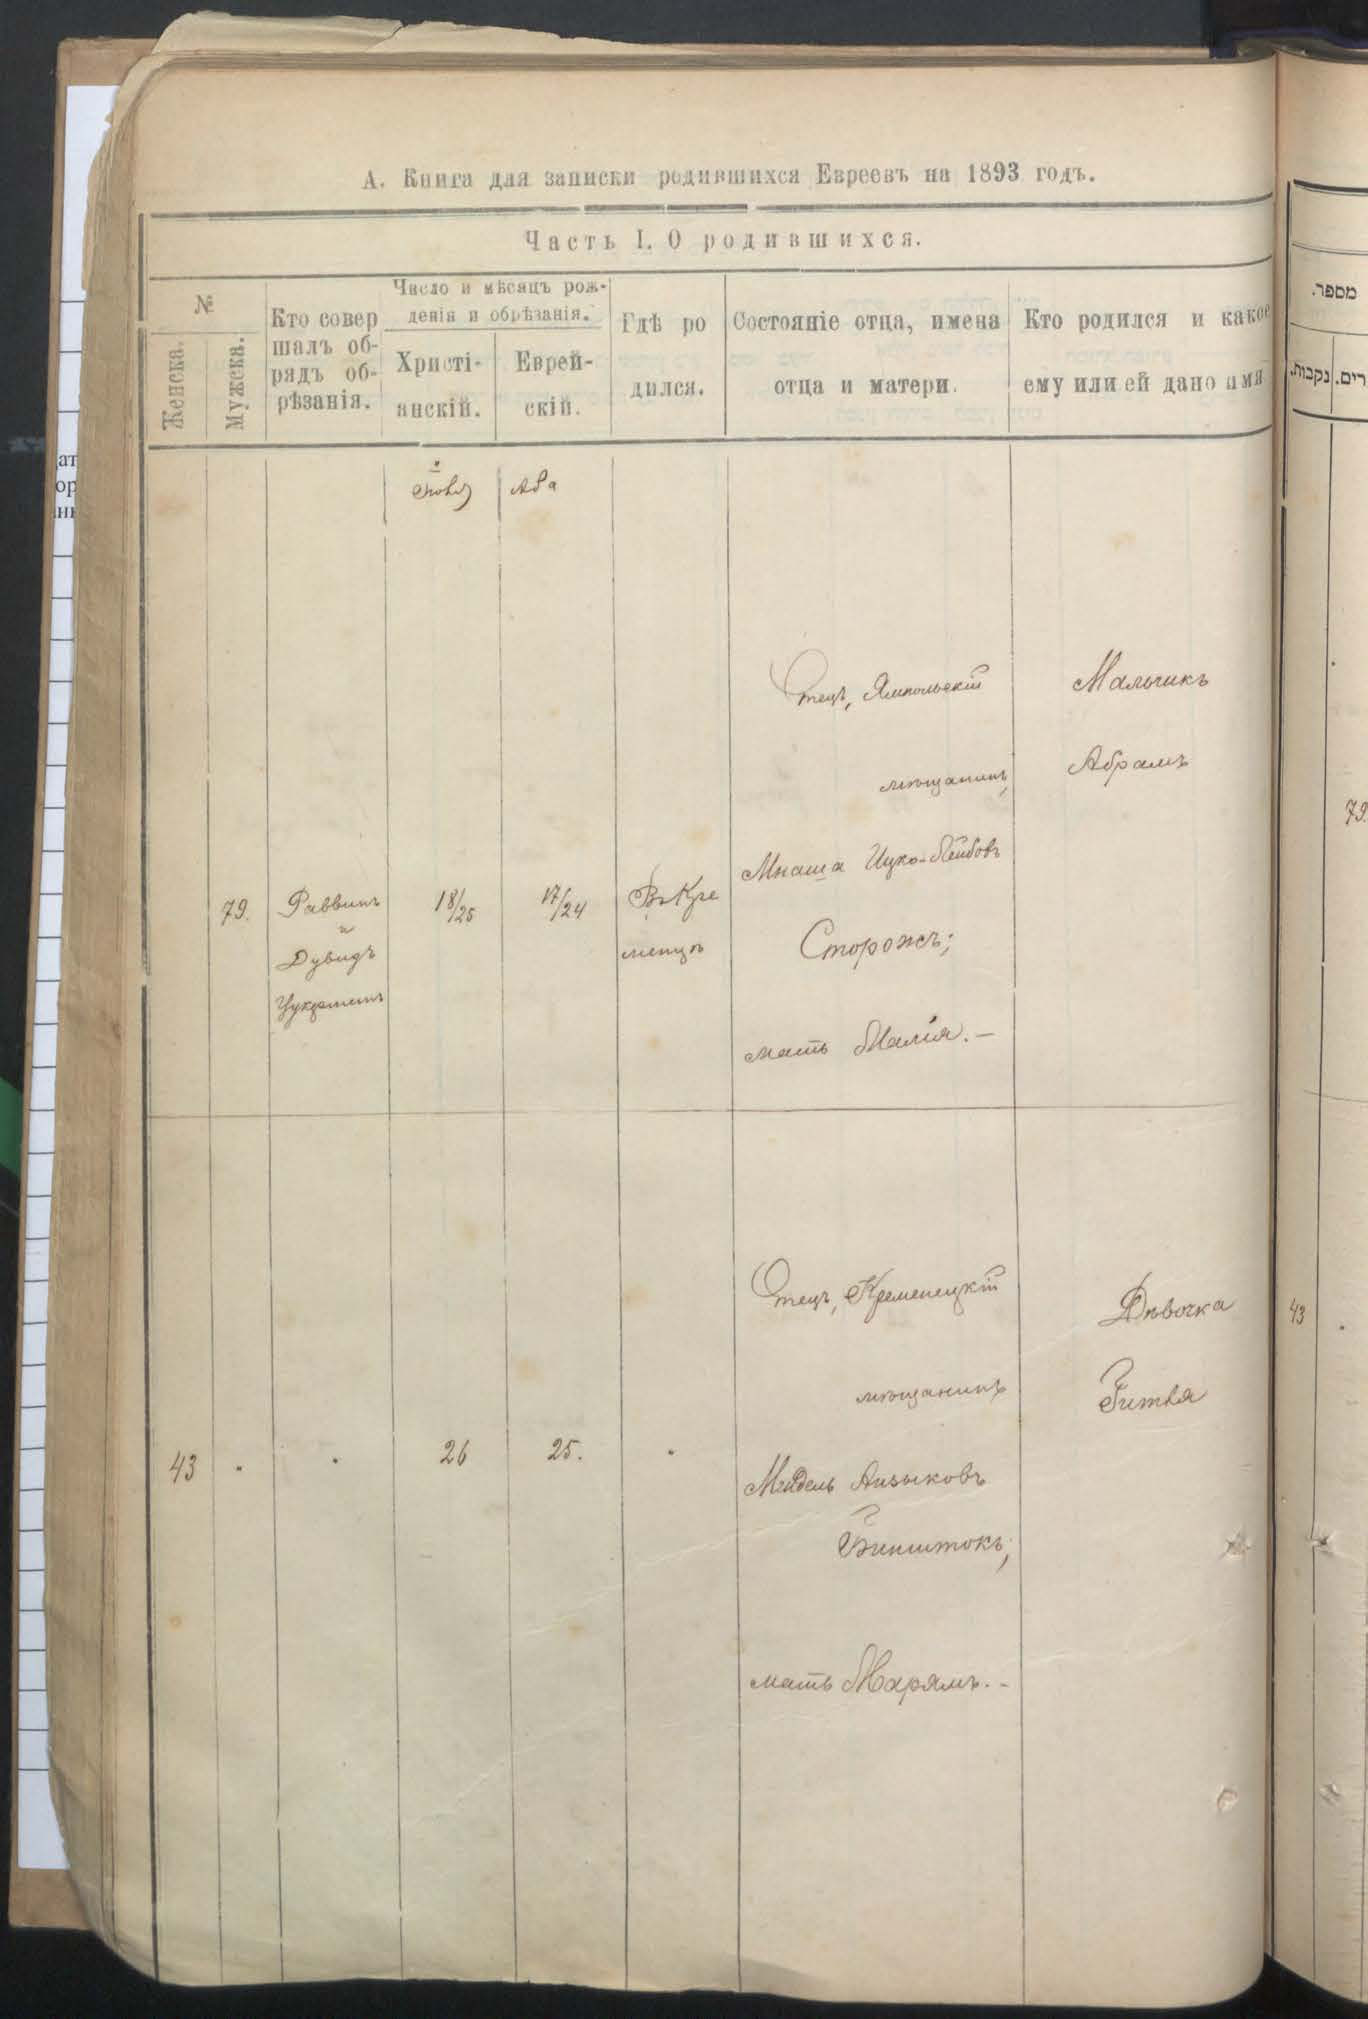 А. Книга для записки родившихся Евреевъ на 1893 годъ.
Часть I. О родившихся.
№
Женска.
Мужска.
Кто совер
шалъ об-
рядъ об-
рѣзанія.
Число и мѣсяцъ рож-
денія и обрѣзанія.
Христі-
анскій.
Еврей-
скій.
Гдѣ ро
дился.
Состояніе отца, имена
отца и матери.
Кто родился и какое
ему или ей дано имя
Іюля
Ава
79.
Раввинъ
и
Дувидъ
18/25
17/24
Въ Кре
менцѣ
Отецъ, Ямпольскій
мѣщанинъ,
Мнаша Ицко-Лейбовъ
Сторожъ;
мать Малія.-
Мальчикъ
Абрамъ
43
.
.
26
25.
.
Отецъ, Кременецкій
мѣщанинъ
Мендель Айзыковъ
Бинштокъ;
мать Марямъ.-
Дѣвочка
Гитля
מספר.
נקבות.
רים.
79.
43
.